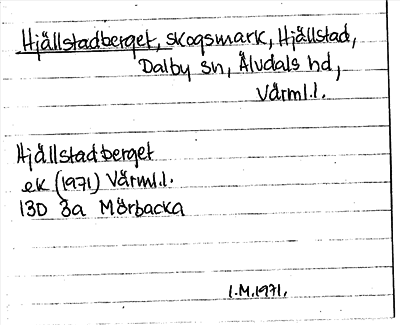 Hjällstadberget, skogsmark, Hjällstad,
Dalby sn, Älvdals hd,
Värml.l.
Hjällstadberget
ek (1971) Värml.l.
13D 3a Mörbacka
I.M.1971.